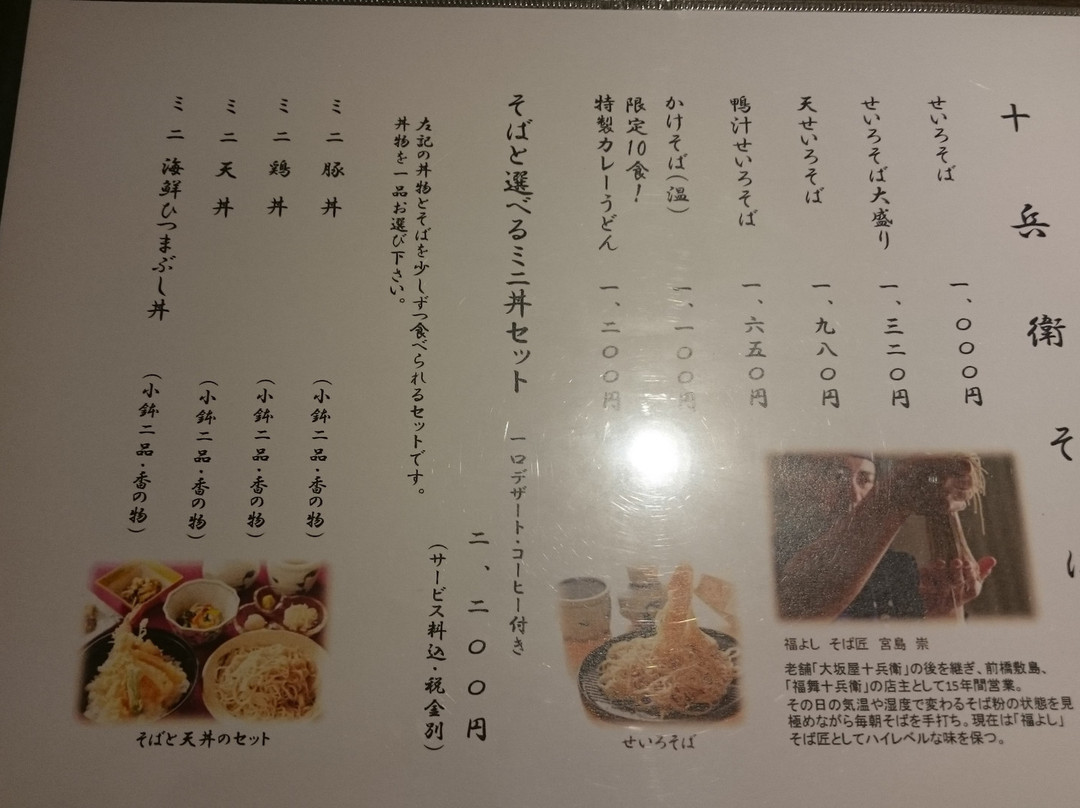 十兵衛そば
せいろそば 一、〇〇〇円
せいろそば大盛り 一、三二〇円
天せいろそば 一、九八〇円
鴨汁せいろそば 一、六五〇円
かけそば(温) 一、一〇〇円
限定10食!
特製カレーうどん 一、二〇〇円
福よし そば匠 宮島 崇
老舗「大坂屋十兵衛」の後を継ぎ、前橋敷島、
「福舞十兵衛」の店主として15年間営業。
その日の気温や湿度で変わるそば粉の状態を見
極めながら毎朝そばを手打ち。現在は「福よし」
そば匠としてハイレベルな味を保つ。
せいろそば
そばと選べるミニ丼セット 一口デザート・コーヒー付き
二、二〇〇円
(サービス料込・税金別)
左記の丼物とそばを少しずつ食べられるセットです。
丼物を一品お選び下さい。
ミニ豚丼 (小鉢二品・香の物)
ミニ鶏丼 (小鉢二品・香の物)
ミニ天丼 (小鉢二品・香の物)
ミニ海鮮ひつまぶし丼 (小鉢二品・香の物)
そばと天丼のセット